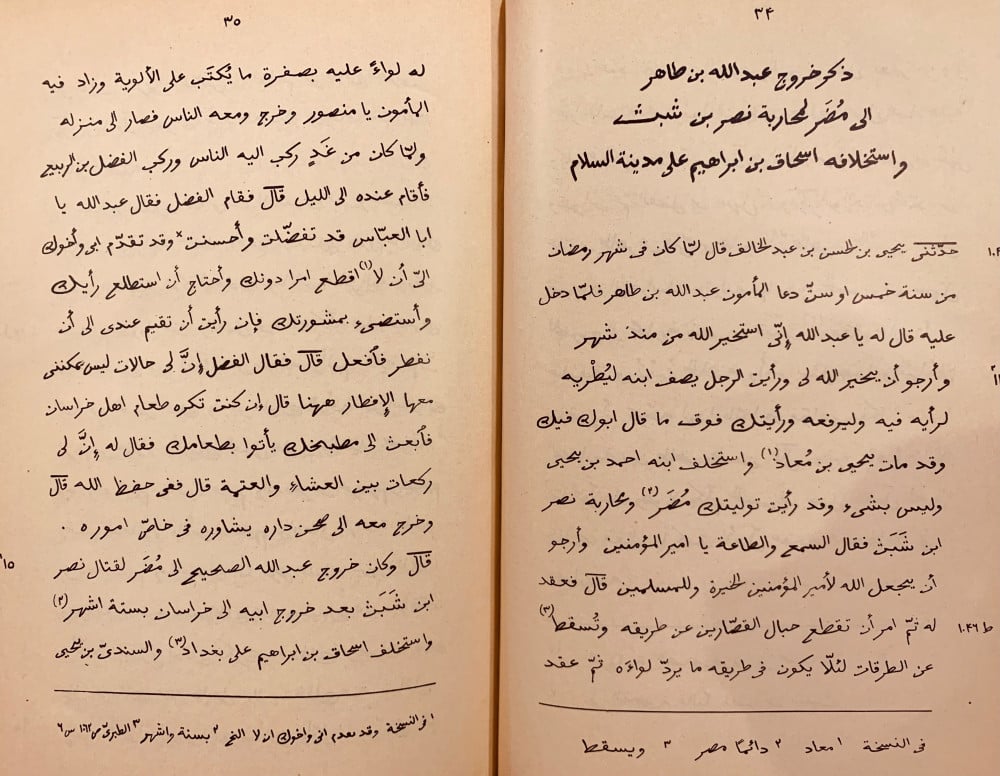 ٣٤
ذكر خروج عبد الله بن طاهر
الى مُضَر لمحاربة نصر بن شبث
واستخلافه اسحاق بن ابراهيم على مدينة السلام
حدّثنى يحيى بن الحسن بن عبد الخالق قال لمّا كان فى شهر رمضان
من سنة خمس او ستّ دعا المأمون عبد الله بن طاهر فلمّا دخل
عليه قال له يا عبد الله إنّى استخير الله من منذ شهر
وأرجو أن يخير الله لى ورأيت الرجل يصف ابنه ليُطْريه
لرأيه فيه وليرفعه ورأيتك فوق ما قال ابوك فيك
وقد مات يحيى بن مُعاد(١) واستخلف ابنه احمد بن يحيى
وليس بشىء وقد رأيت توليتك مُضَر(٢) ومحاربة نصر
ابن شَبَث فقال السمع والطاعة يا امير المؤمنين وأرجو
أن يجعل الله لأمير المؤمنين الخيرة وللمسلمين قال فعقد
له ثمّ امر أن تقطع حبال القصّارين عن طريقه وتُسقط(٣)
ط ١٠٤٦
عن الطرقات لئلّا يكون فى طريقه ما يردّ لواءه ثمّ عقد
فى النسخة ١ معاد ٢ دائمًا مصر ٣ ويسقط
٣٥
له لواءً عليه بصفرة ما يُكتَب على الألوية وزاد فيه
المأمون يا منصور وخرج ومعه الناس فصار الى منزله
ولمّا كان من غَدٍ ركب اليه الناس وركب الفضل بن الربيع
فأقام عنده الى الليل قال فقام الفضل فقال عبد الله يا
ابا العبّاس قد تفضّلت وأحسنت × وقد تقدّم ابى وأخوك
الىّ أن لا(١) اقطع امرا دونك وأحتاج أن استطلع رأيك
وأستضىء بمشورتك فإن رأيت أن تقيم عندى الى أن
نفطر فافعل قال فقال الفضل إنَّ لى حالات ليس يمكننى
معها الإفطار ههنا قال إن كنت تكره طعام اهل خراسان
فابعث الى مطبخك يأتوا بطعامك فقال له إنَّ لى
ركعات بين العشاءِ والعتمة قال ففى حفظ الله قال
وخرج معه الى صحن داره يشاوره فى خاصّ اموره .
قال وكان خروج عبد الله الصحيح الى مُضَر لقتال نصر
ابن شَبَث بعد خروج ابيه الى خراسان بستة اشهر(٢)
واستخلف اسحاق بن ابراهيم على بغداد(٣) والسندىّ بن يحيى
١ فى النسخة وقد ىعدم انى واخوك ان لا الخ ٢ بستة واشهر ٣ الطبرىّ ص ١٠٦٢ س ٦